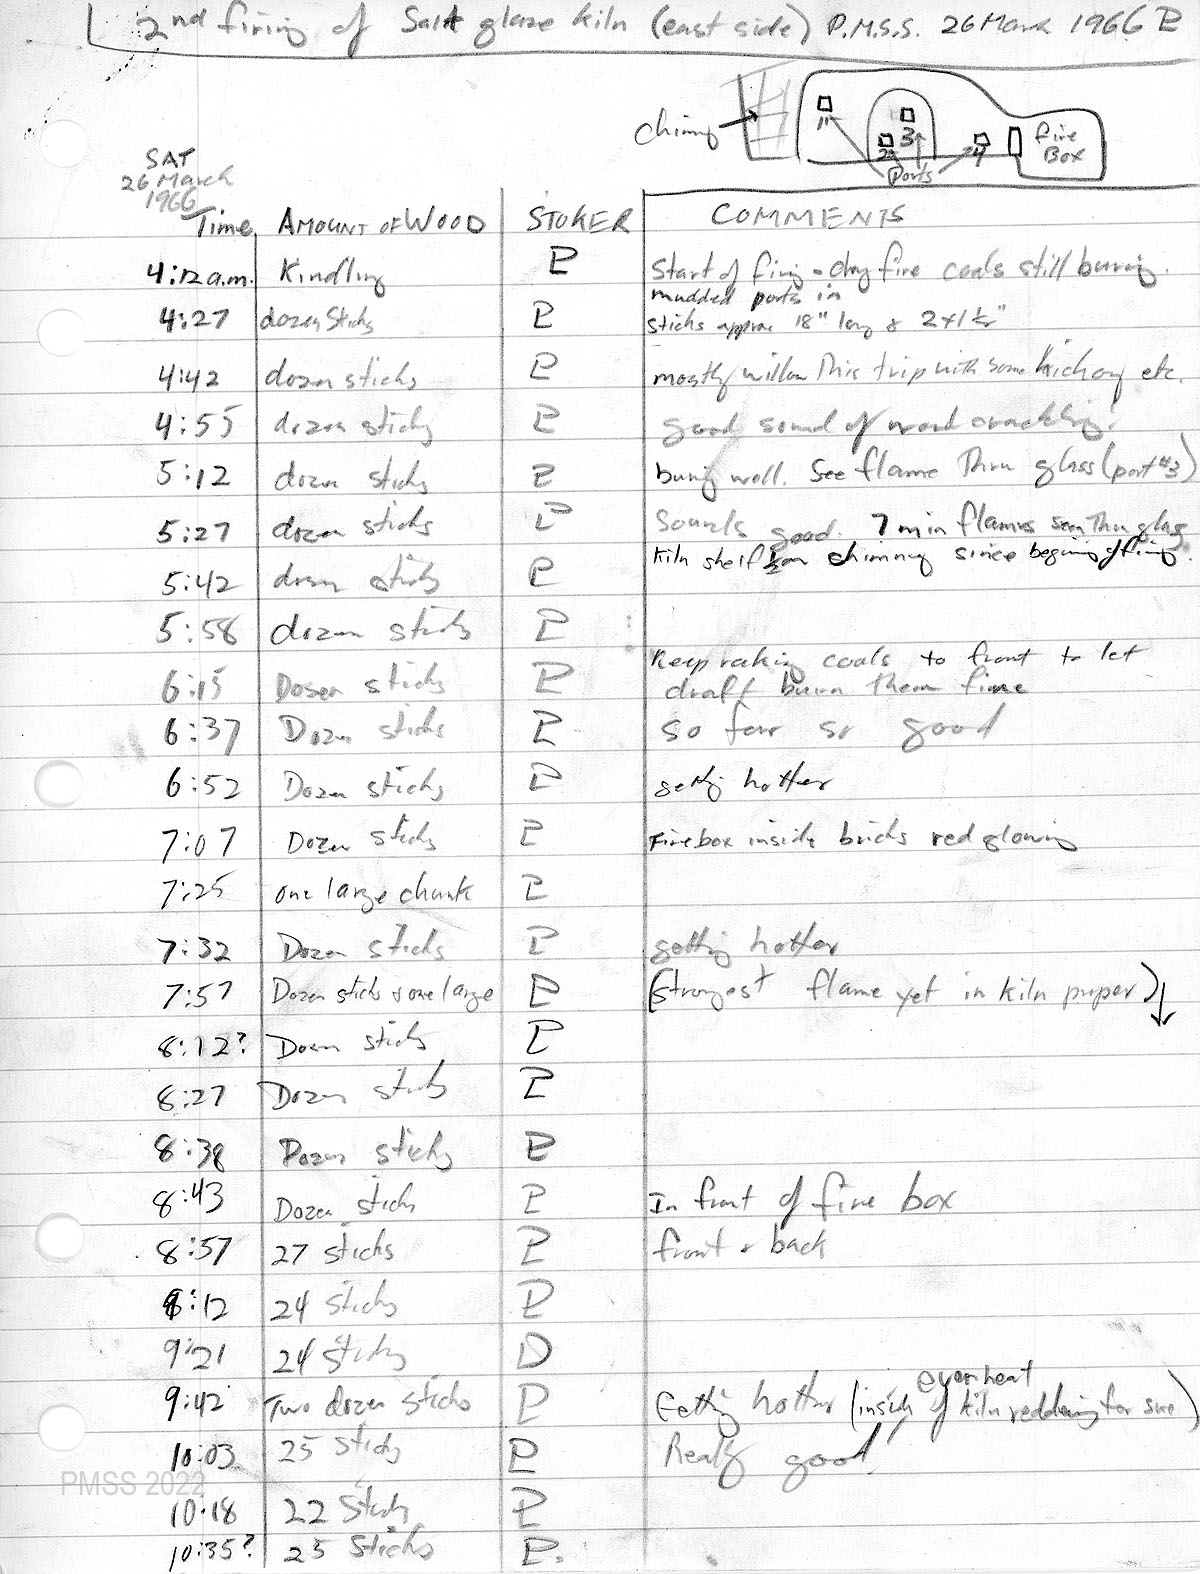 2nd firing of Salt glaze kiln (east side) P.M.S.S. 26 March 1966 P
chimny
11
3
2
4
Ports
Fire
Box
SAT
26 March
1966
Time AMOUNT OF WOOD STOKER COMMENTS
4:12 a.m. Kindling P Start of firing - dry fire coals still burning.
mudded ports in
4:27 dozen sticks P sticks approx 18" long & 2x1½"
4:42 dozen sticks P mostly willow this trip with some hickory etc.
4:55 dozen sticks P good sound of wood crackling!
5:12 dozen sticks P burning well. See flame thru glass (port #3)
5:27 dozen sticks P Sounds good. 7 min flames seen thru glass
Kiln shelf ½ on chimney since begining of firing.
5:42 dozen sticks P
5:58 dozen sticks P
Keep raking coals to front to let
6:15 Dosen sticks P draft burn them fine
6:37 Dozen sticks P so far so good
6:52 Dozen sticks P getting hotter
7:07 Dozen sticks P Firebox inside bricks red glowing
7:25 one large chunk P
7:32 Dozen sticks P getting hotter
7:57 Dozen sticks & one large P (Strongest flame yet in kiln proper) ↓
8:12? Dozen sticks P
8:27 Dozen sticks P
8:38 Dozen sticks P
8:43 Dozen sticks P In front of fire box
8:57 27 sticks P front & back
9:12 24 sticks P
9:21 24 sticks D
even heat
9:42 Two dozen sticks P Getting hotter (inside of kiln reddening for sure)
10:03 25 sticks P Really good!
PMSS 2022
10:18 22 Sticks P
10:35? 25 Sticks P.